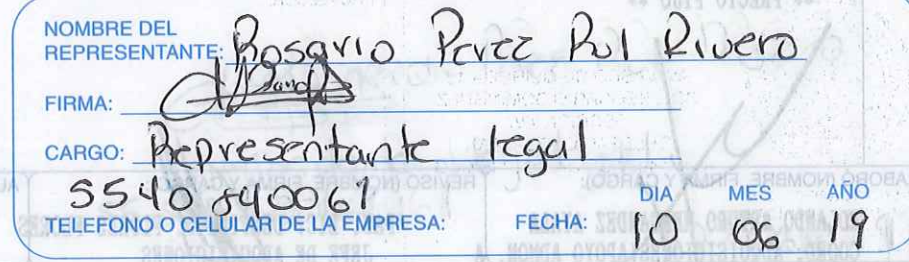 NOMBRE DEL
REPRESENTANTE: Rosario Perez Rul Rivero
FIRMA:
CARGO: Representante legal
5540840061
TELEFONO O CELULAR DE LA EMPRESA:
FECHA: DIA MES AÑO
10 06 19